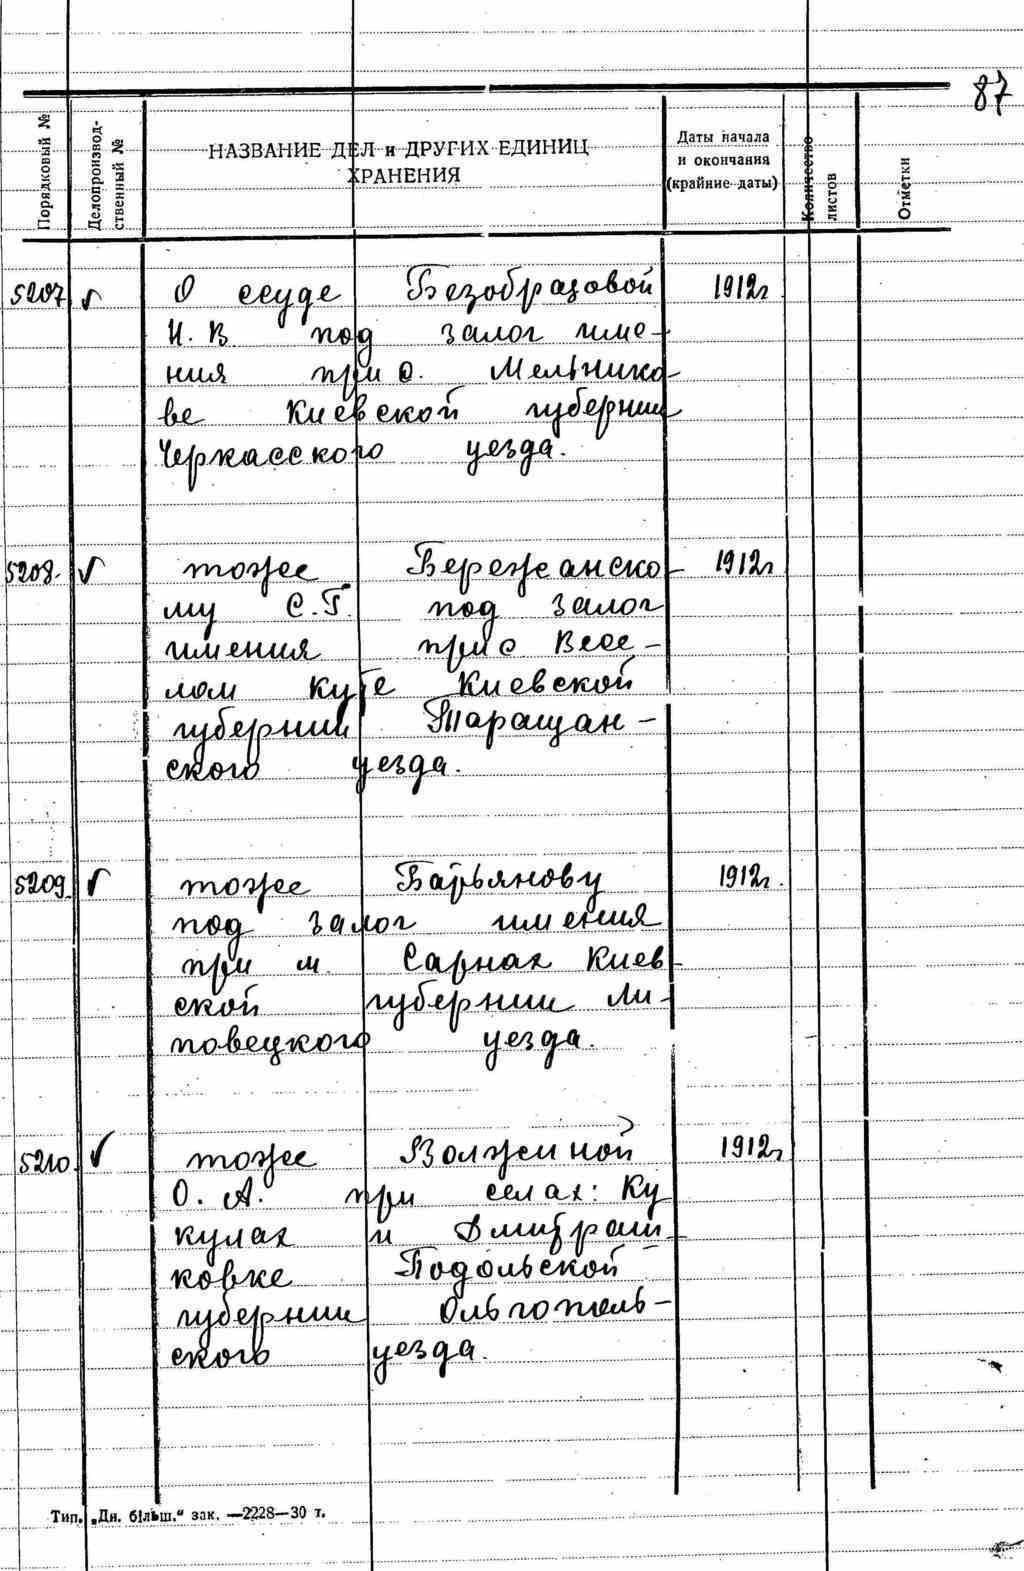 87
Порядковый №
Делопроизвод-
ственный №
НАЗВАНИЕ ДЕЛ и ДРУГИХ ЕДИНИЦ
ХРАНЕНИЯ
Даты начала
и окончания
(крайние даты)
Количество
листов
Отметки
5207 √ О ссуде Безобразовой 1912г
Н. В. под залог име-
ния при с. Мельнико-
ве Киевской губернии
Черкасского уезда.
5208. √ тоже Бережанско- 1912г
му С.Г. под залог
имения при с Весе-
лом Куте Киевской
губернии Таращан-
ского уезда.
5209. √ тоже 1912г.
под залог имения
при м. Сарнах Киев-
ской губернии Ли-
повецкого уезда.
5210. √ тоже Волжиной 1912г
О. А. при селах: Ку
кулах и Дмитраш-
ковке Подольской
губернии Ольгополь-
ского уезда.
Тип. „Дн. більш." зак. —2228—30 т.